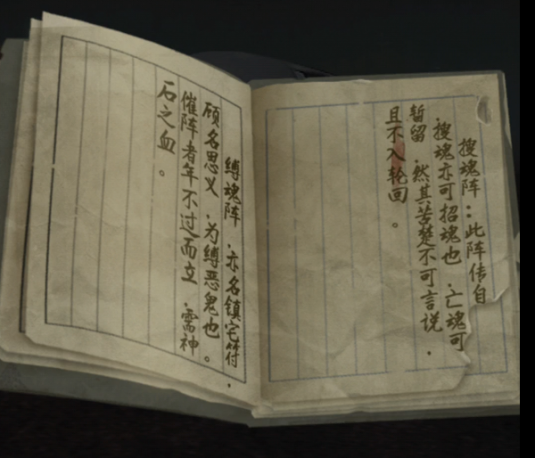 搜魂阵：此阵传自
搜魂亦可招魂也，亡魂可
暂留，然其苦楚不可言说，
且不入轮回。
缚魂阵，亦名镇宅符，
顾名思义，为缚恶鬼也。
催阵者年不过而立，需神
石之血。